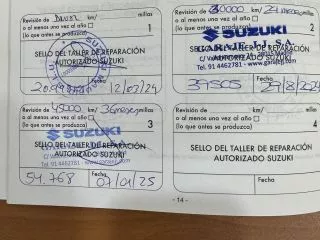 Revisión de km/ millas
o al menos una vez al año
(lo que antes se produzca)
1
SELLO DEL TALLER DE REPARACIÓN
AUTORIZADO SUZUKI
Fecha
12/03/24
Revisión de 30000 km/ 24 meses millas
o al menos una vez al año
(lo que antes se produzca)
2
SUZUKI
SELLO DEL TALLER DE REPARACIÓN
AUTORIZADO SUZUKI
Tel. 91 4462781 -
Fecha
39505
29/8/2024
Revisión de 45000 km/ 36 meses millas
o al menos una vez al año
(lo que antes se produzca)
3
SUZUKI
SELLO DEL TALLER DE REPARACIÓN
AUTORIZADO SUZUKI
Tel. 91 4462781 -
Fecha
54.768
07/01/25
Revisión de km/ millas
o al menos una vez al año
(lo que antes se produzca)
4
SELLO DEL TALLER DE REPARACIÓN
AUTORIZADO SUZUKI
Fecha
- 14 -